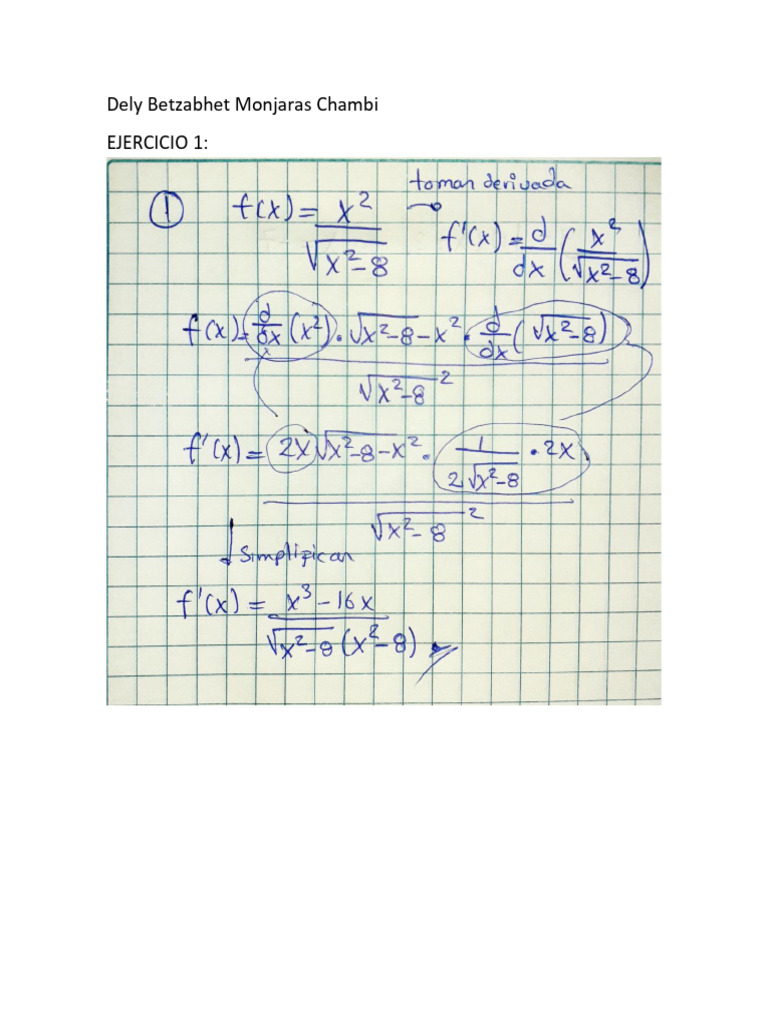 Dely Betzabhet Monjaras Chambi
EJERCICIO 1:
① f(x) = x² / √(x²-8) → tomar derivada
f'(x) = d/dx (x² / √(x²-8))
f(x) = d/dx (x²) · √(x²-8) - x² · d/dx (√(x²-8))
√(x²-8)²
f'(x) = 2x √(x²-8) - x² · 1 / (2√(x²-8)) · 2x
√(x²-8)²
↓ Simplificar
f'(x) = x³ - 16x
√(x²-8) (x²-8)